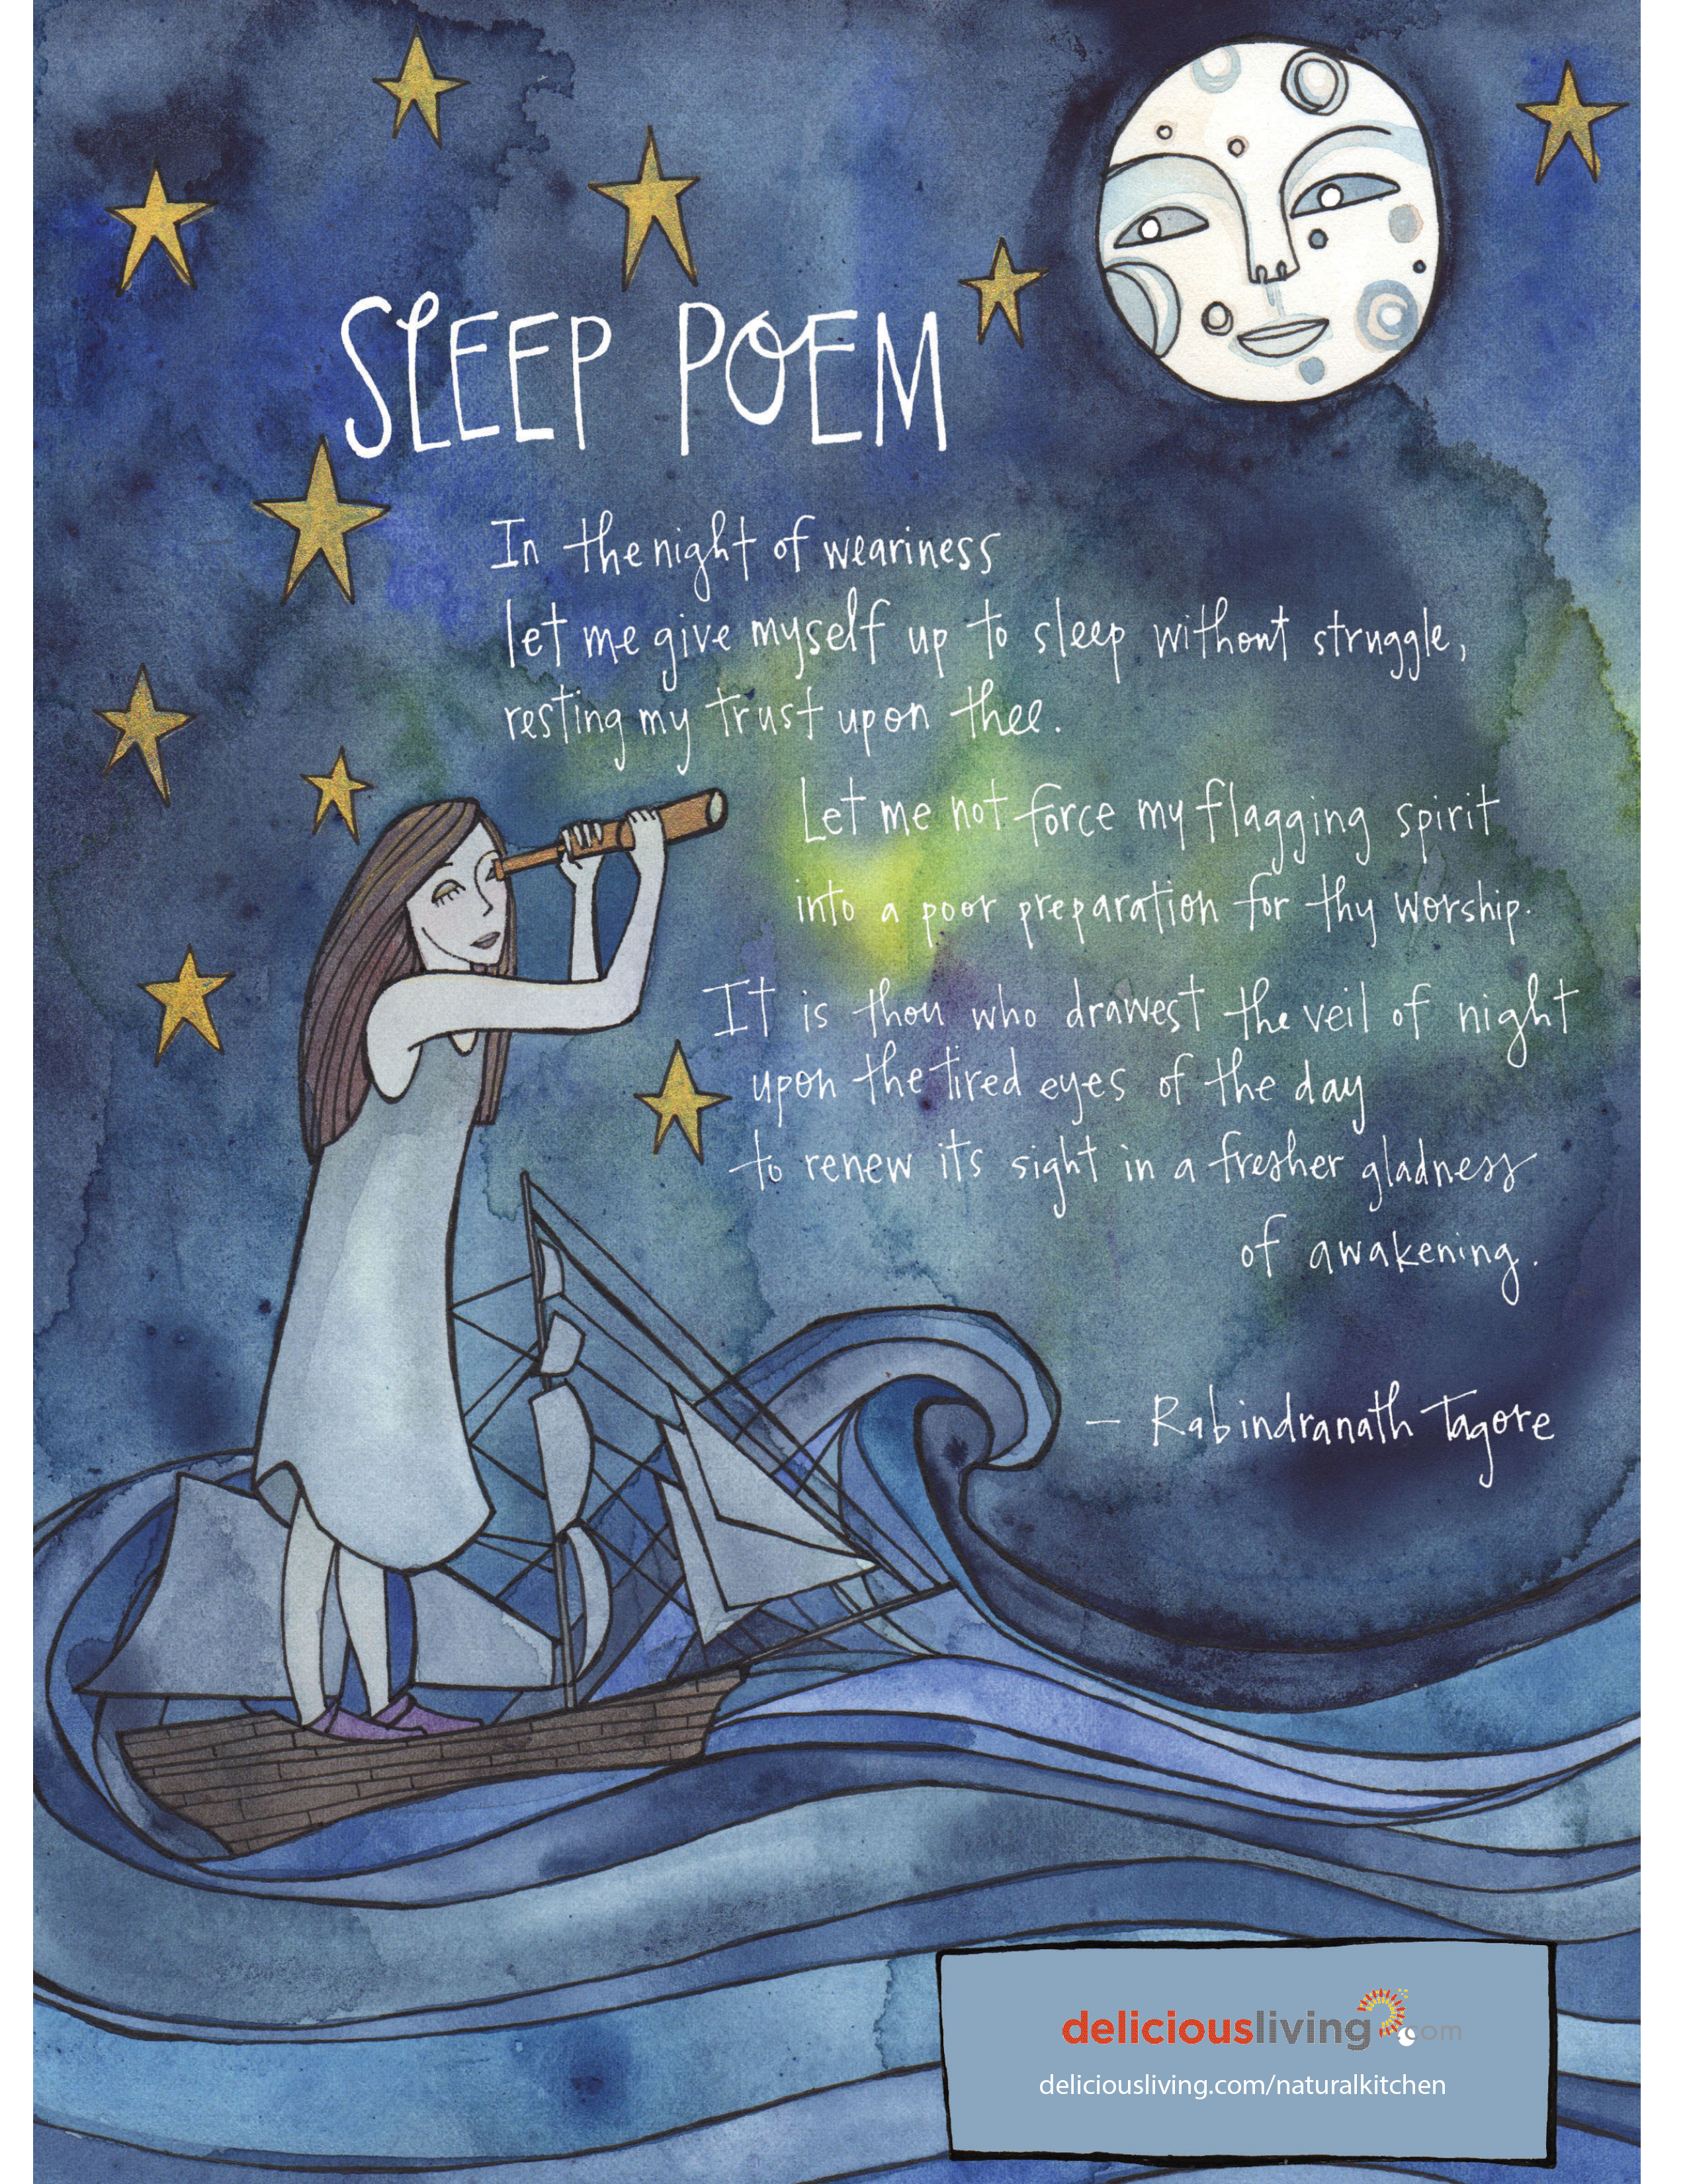 SLEEP POEM
In the night of weariness
let me give myself up to sleep without struggle,
resting my trust upon thee.
Let me not force my flagging spirit
into a poor preparation for thy worship.
It is thou who drawest the veil of night
upon the tired eyes of the day
to renew its sight in a fresher gladness
of awakening.
— Rabindranath Tagore
deliciousliving.com
deliciousliving.com/naturalkitchen